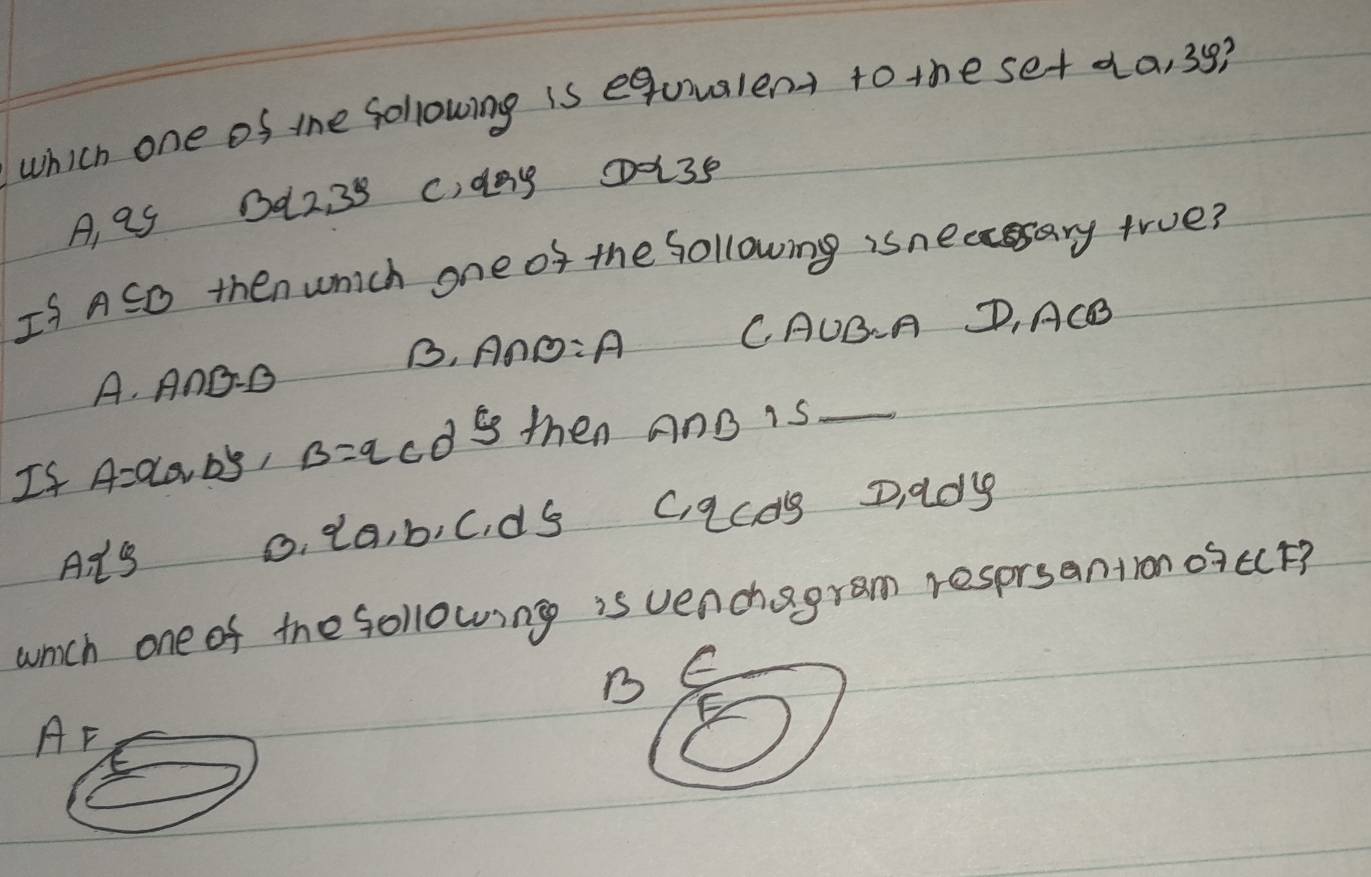 which one of the following is equivalent to the set {a,3}?
A, {} B {2,3} C, {a} D {3}
If A⊆B then which one of the following is neccssary true?
A. A∩B=B B. A∩B=A C, A∪B=A D, A⊂B
If A={a,b}, B={cd} then A∩B is —
A, {} B. {a,b,c,d} C, {cd} D, {d}
which one of the following is venchagram resprsantion of E⊂F?
A F E
B E F